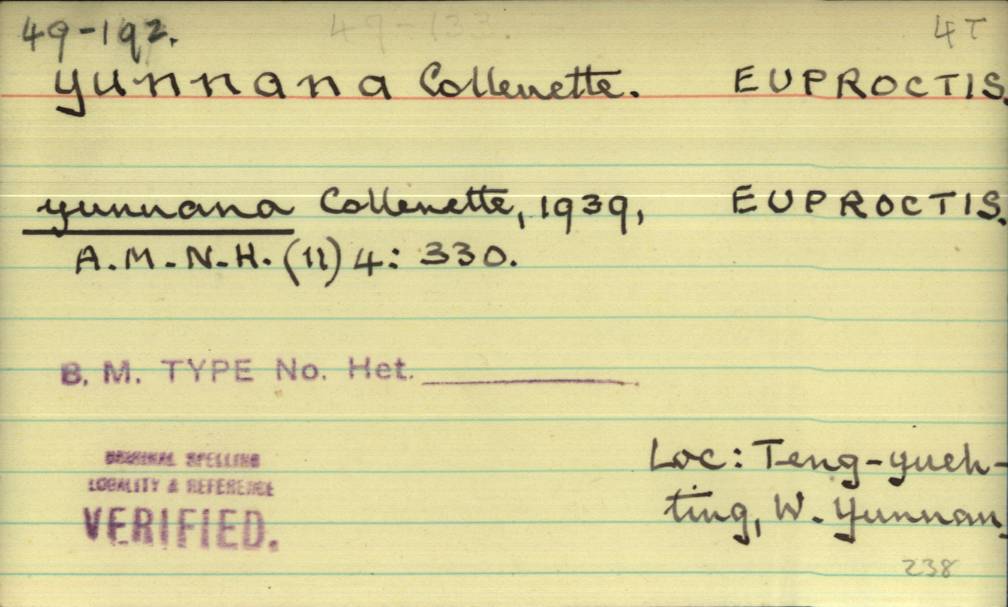 49-192. 49-133. 4T
yunnana Collenette. EUPROCTIS.
yunnana Collenette, 1939, EUPROCTIS.
A.M.N.H. (11) 4: 330.
B. M. TYPE No. Het.
ORIGINAL SPELLING
LOCALITY & REFERENCE
VERIFIED.
Loc: Teng-yueh-
ting, W. Yunnan
238